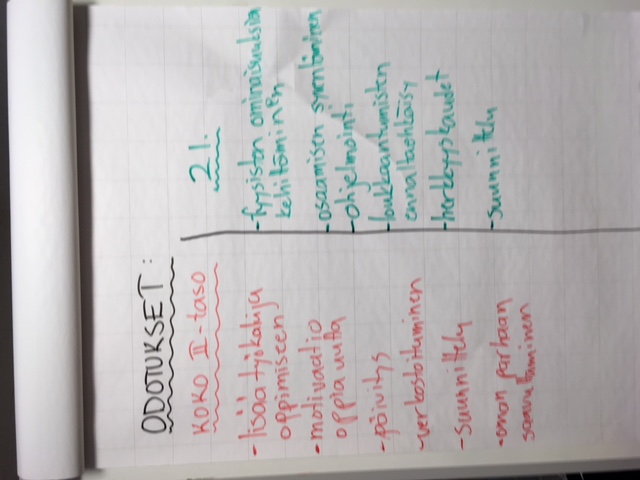 ODOTUKSET:
KOKO II-taso
- lisää työkaluja
oppimiseen
- motivaatio
oppia uutta
- päivitys
- verkostoituminen
- Suunnittelu
- oman parhaan
saavuttaminen
21.
- fyysisten ominaisuuksien
kehittäminen
- osaamisen syventäminen
- ohjelmointi
- loukkaantumisten
ennaltaehkäisy
- herkkyyskaudet
- suunnittelu